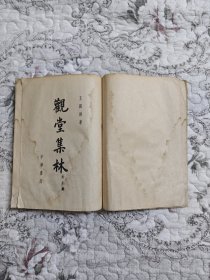 王國維著
觀堂集林
中華書局